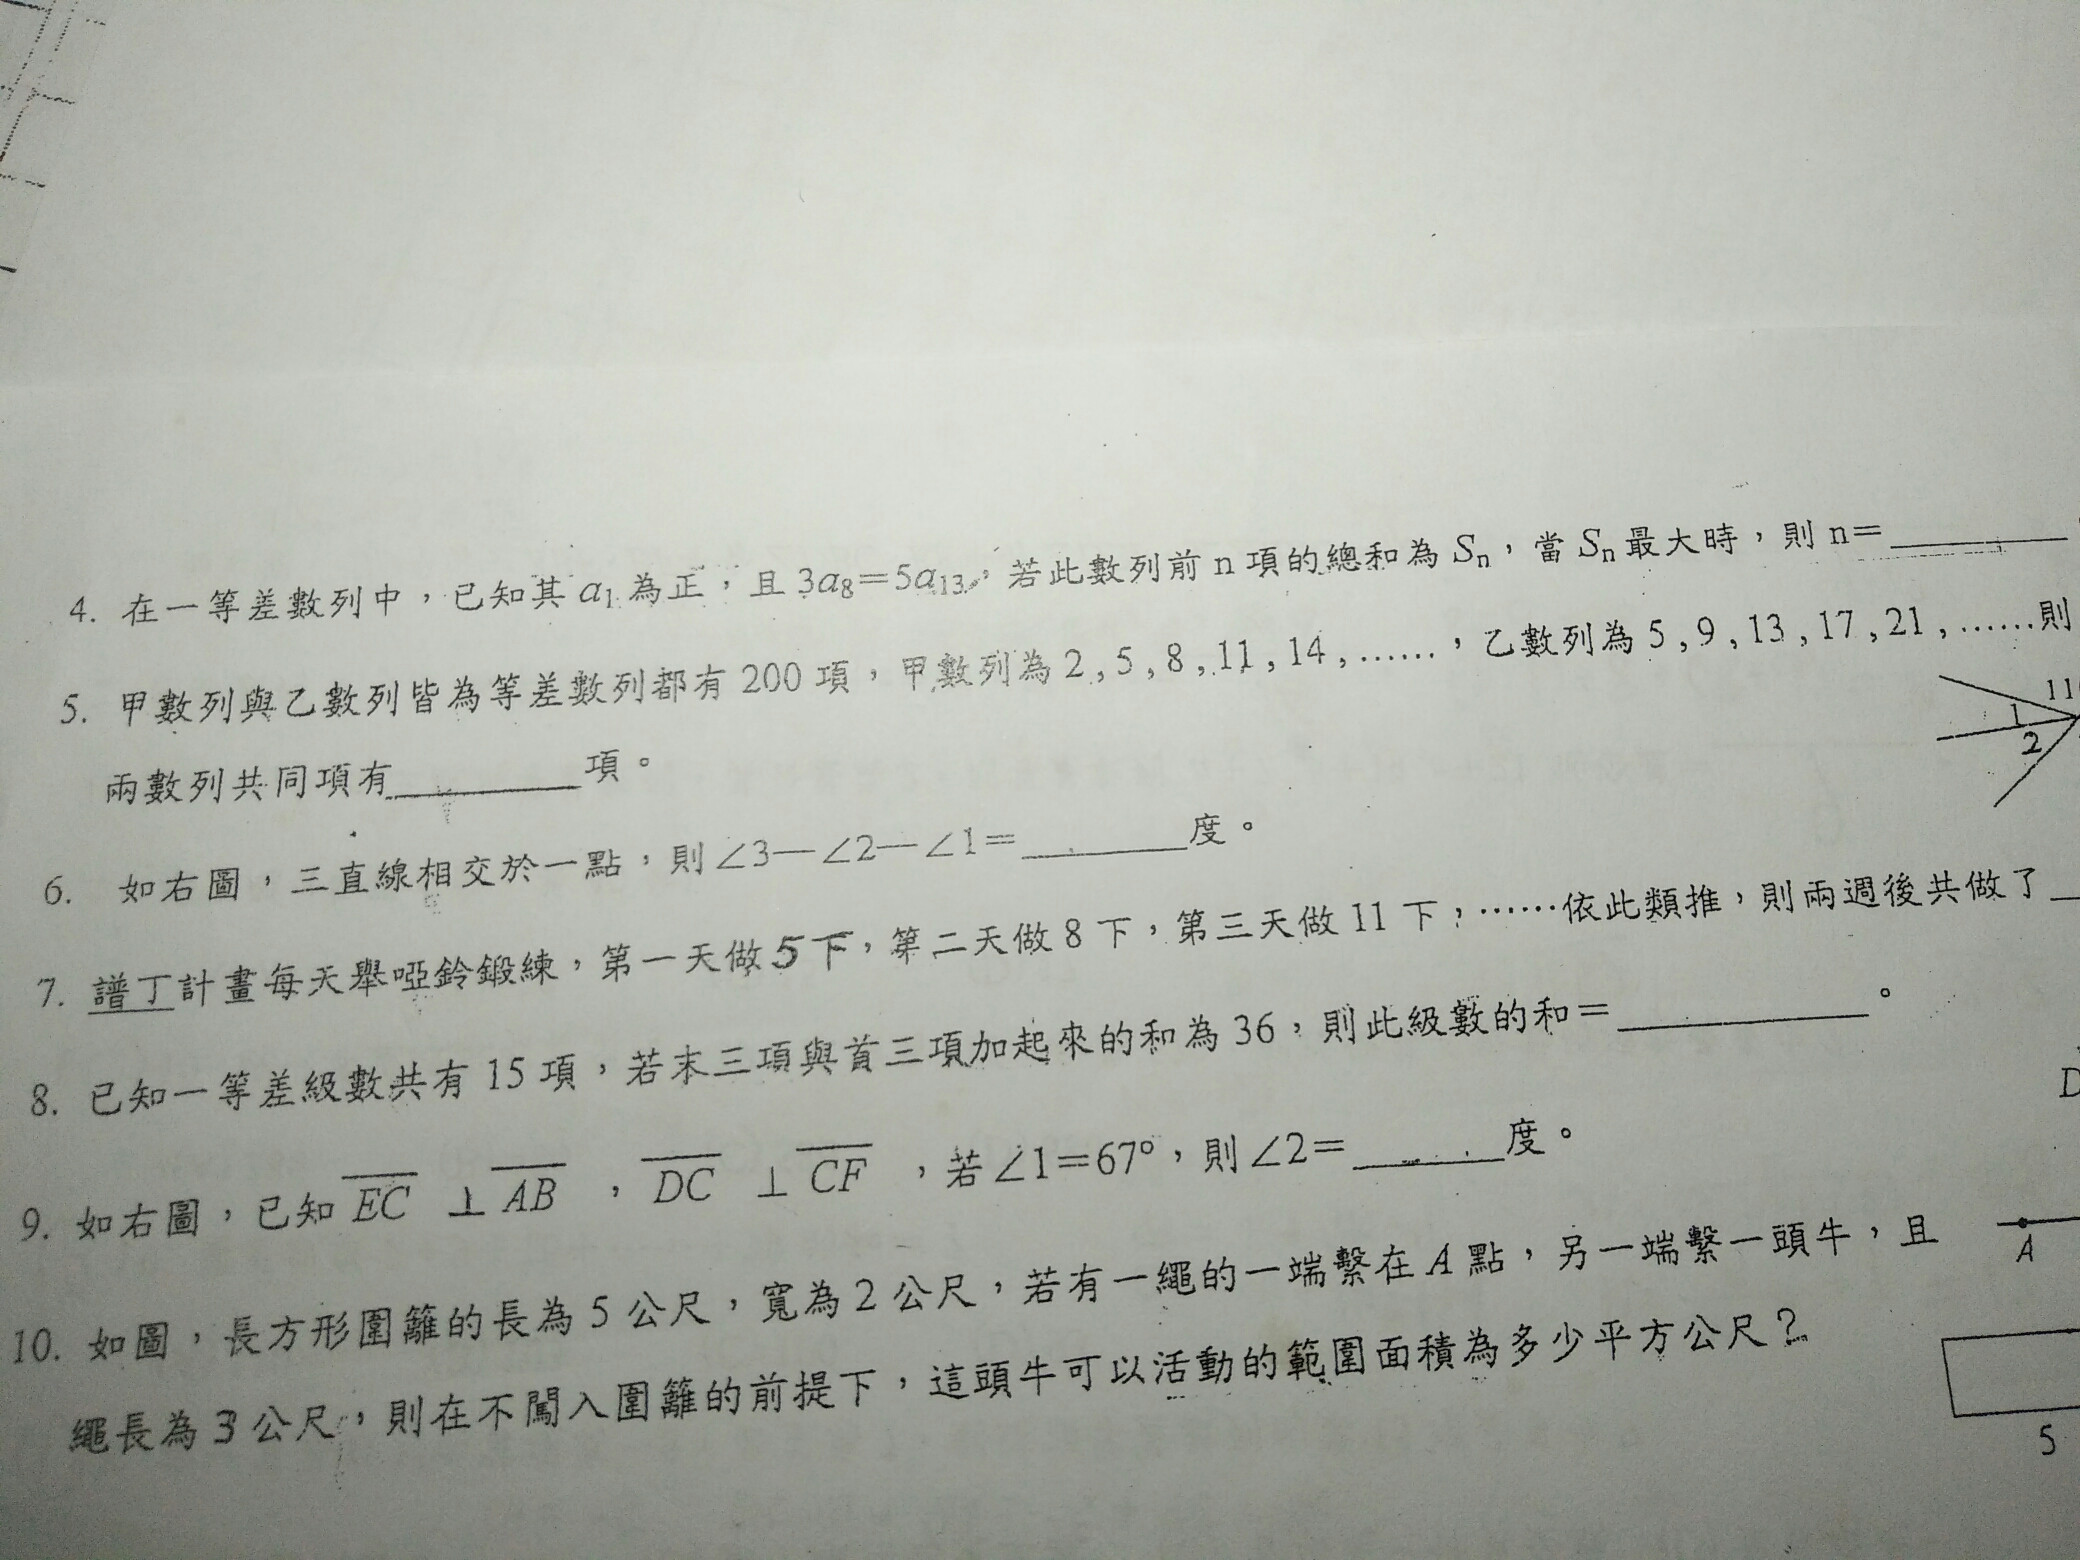 4. 在一等差數列中，已知其 a₁ 為正，且 3a₈＝5a₁₃，若此數列前 n 項的總和為 Sₙ，當 Sₙ 最大時，則 n＝________
5. 甲數列與乙數列皆為等差數列都有 200 項，甲數列為 2 , 5 , 8 , 11 , 14 , ……，乙數列為 5 , 9 , 13 , 17 , 21 , ……則
兩數列共同項有________項。
11
1
2
6. 如右圖，三直線相交於一點，則 ∠3—∠2—∠1＝________度。
7. 譜丁計畫每天舉啞鈴鍛練，第一天做 5 下，第二天做 8 下，第三天做 11 下，……依此類推，則兩週後共做了
8. 已知一等差級數共有 15 項，若末三項與首三項加起來的和為 36，則此級數的和＝________。
D
9. 如右圖，已知 EC ⊥ AB ，DC ⊥ CF ，若 ∠1＝67°，則 ∠2＝________度。
A
10. 如圖，長方形圍籬的長為 5 公尺，寬為 2 公尺，若有一繩的一端繫在 A 點，另一端繫一頭牛，且
繩長為 3 公尺，則在不闖入圍籬的前提下，這頭牛可以活動的範圍面積為多少平方公尺？
5